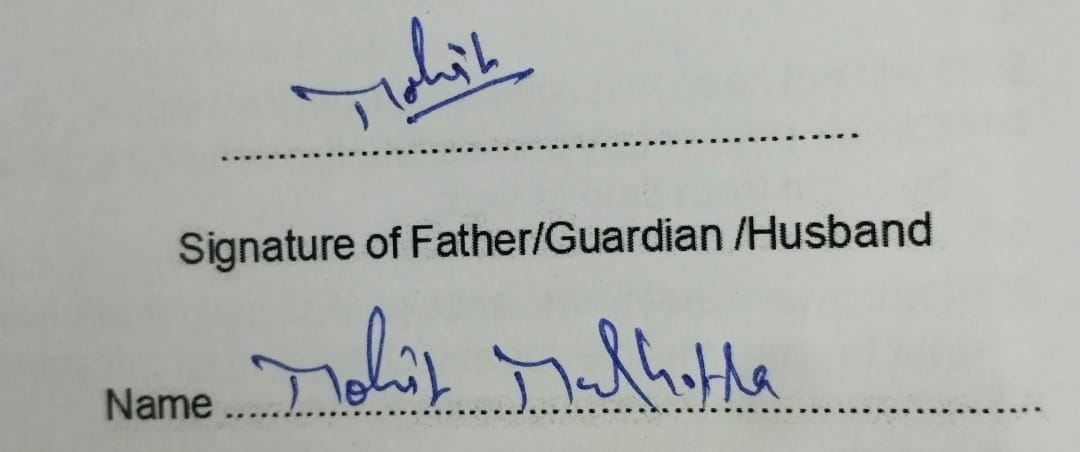 Mohit
Signature of Father/Guardian /Husband
Name Mohit Malhotra